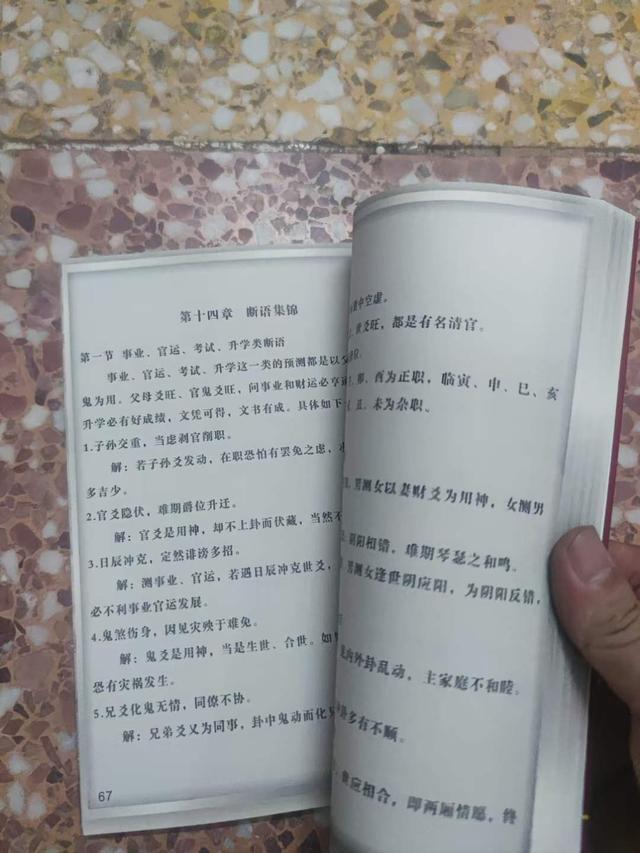 第十四章 断语集锦
第一节 事业、官运、考试、升学类断语
事业、官运、考试、升学这一类的预测都是以父
鬼为用。父母爻旺、官鬼爻旺，问事业和财运必亨通
升学必有好成绩，文凭可得，文书有成。具体如下
1.子孙交重，当虑剥官削职。
解：若子孙爻发动，在职恐怕有罢免之虑，
多吉少。
2.官爻隐伏，难期爵位升迁。
解：官爻是用神，却不上卦而伏藏，当然不
3.日辰冲克，定然诽谤多招。
解：测事业、官运，若遇日辰冲克世爻，
必不利事业官运发展。
4.鬼煞伤身，因见灾殃于难免。
解：鬼爻是用神，当是生世、合世。如
恐有灾祸发生。
5.兄爻化鬼无情，同僚不协。
解：兄弟爻又为同事，卦中鬼动而化
67
中空虚。
世爻旺，都是有名清官。
卯、酉为正职，临寅、申、巳、亥
丑、未为杂职。
男测女以妻财爻为用神，女测男
阴阳相错，难期琴瑟之和鸣。
男测女逢世阴应阳，为阴阳反错，
内外卦乱动，主家庭不和睦。
卦多有不顺。
世应相合，即两厢情愿，终